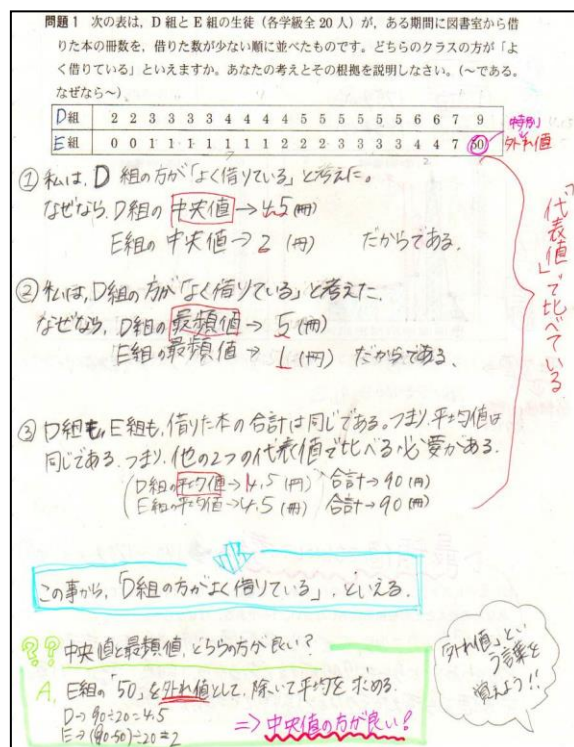 問題1 次の表は，D組とE組の生徒（各学級全20人）が，ある期間に図書室から借
りた本の冊数を，借りた数が少ない順に並べたものです。どちらのクラスの方が「よ
く借りている」といえますか。あなたの考えとその根拠を説明しなさい。（～である。
なぜなら～）
D組 2 2 3 3 3 3 4 4 4 4 5 5 5 5 5 6 6 7 9
E組 0 0 1 1 1 1 1 1 1 2 2 2 3 3 3 3 4 4 7 50
特別
外れ値
① 私は，D組の方が「よく借りている」と考えた。
なぜなら，D組の中央値→4.5(冊)
E組の中央値→2(冊) だからである。
② 私は，D組の方が「よく借りている」と考えた。
なぜなら，D組の最頻値→5(冊)
E組の最頻値→1(冊) だからである。
「代表値」で比べている
③ D組も，E組も，借りた本の合計は同じである。つまり，平均値は
同じである。つまり，他の2つの代表値で比べる必要がある。
(D組の平均値→4.5(冊) 合計→90(冊)
E組の平均値→4.5(冊) 合計→90(冊))
この事から，「D組の方がよく借りている」，といえる。
?? 中央値と最頻値，どちらの方が良い？
A. E組の「50」を外れ値として，除いて平均を求める。
D→90÷20=4.5
E→(90-50)÷20=2
⇒中央値の方が良い！
「外れ値」とい
う言葉を
覚えよう！！